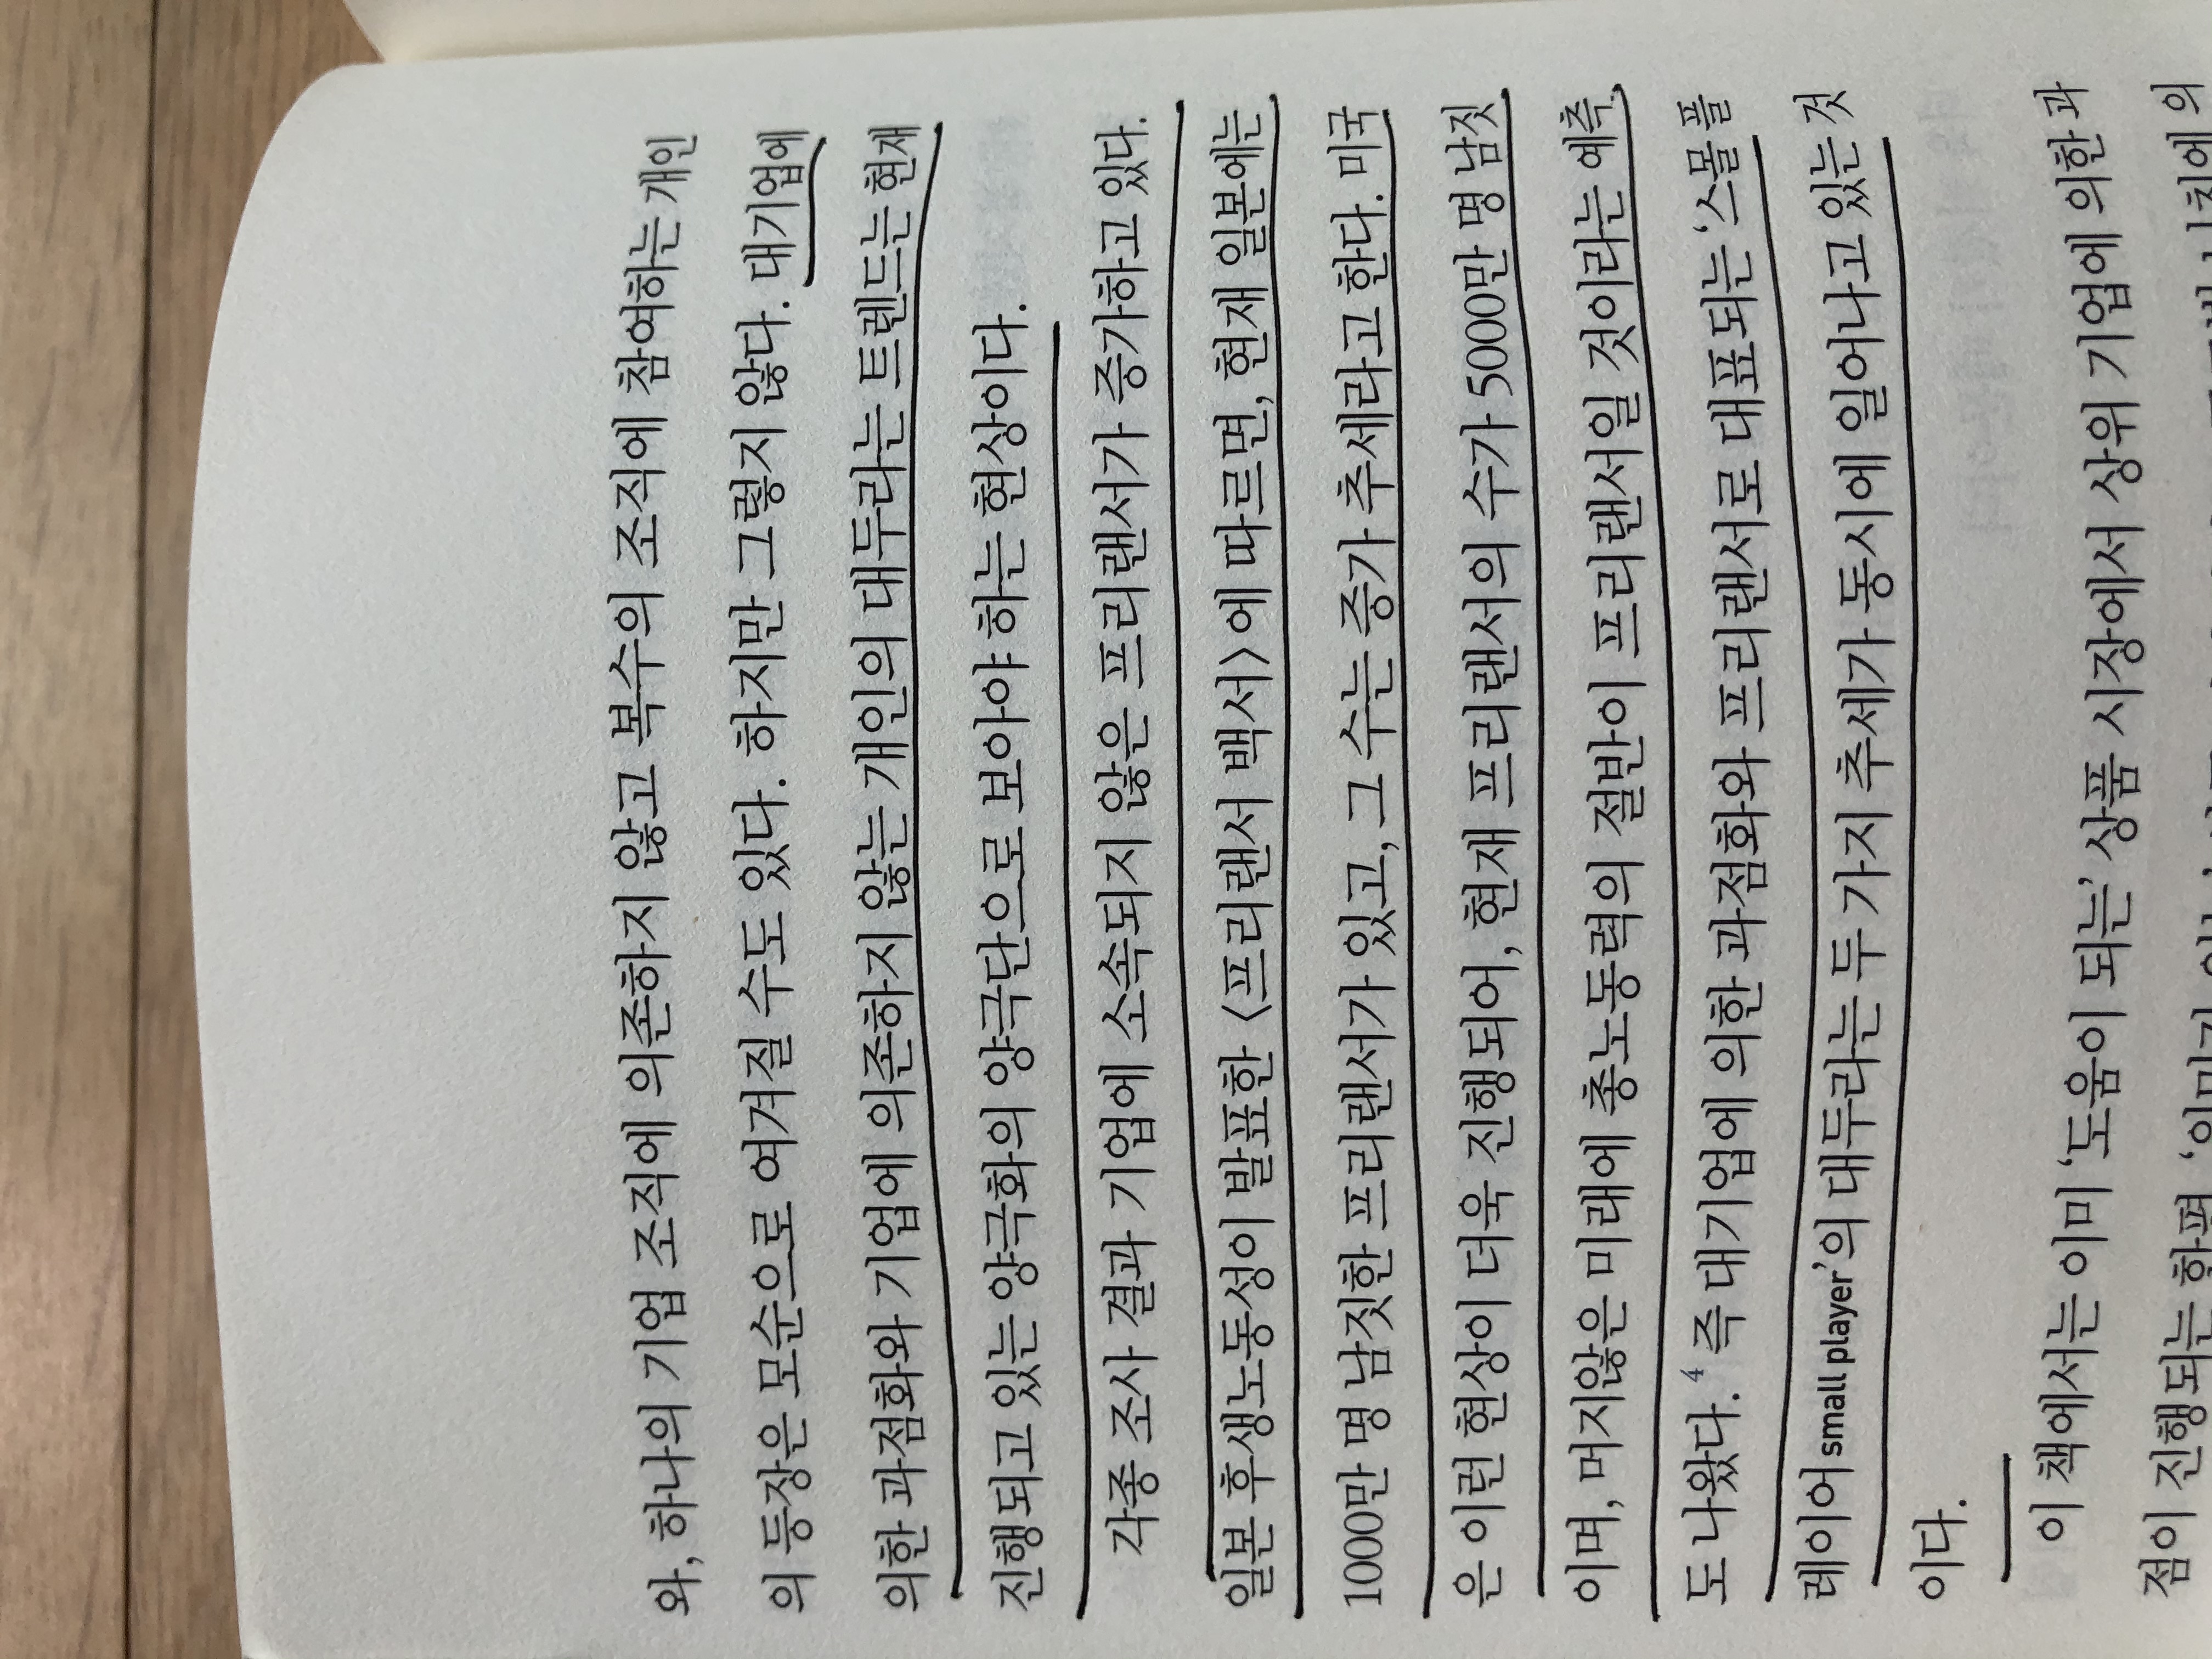 와, 하나의 기업 조직에 의존하지 않고 복수의 조직에 참여하는 개인
의 등장은 모순으로 여겨질 수도 있다. 하지만 그렇지 않다. 대기업에
의한 과점화와 기업에 의존하지 않는 개인의 대두라는 트렌드는 현재
진행되고 있는 양극화의 양극단으로 보아야 하는 현상이다.
각종 조사 결과 기업에 소속되지 않은 프리랜서가 증가하고 있다.
일본 후생노동성이 발표한 〈프리랜서 백서〉에 따르면, 현재 일본에는
1000만 명 남짓한 프리랜서가 있고, 그 수는 증가 추세라고 한다. 미국
은 이런 현상이 더욱 진행되어, 현재 프리랜서의 수가 5000만 명 남짓
이며, 머지않은 미래에 총노동력의 절반이 프리랜서일 것이라는 예측
도 나왔다.⁴ 즉 대기업에 의한 과점화와 프리랜서로 대표되는 ‘스몰 플
레이어small player’의 대두라는 두 가지 추세가 동시에 일어나고 있는 것
이다.
이 책에서는 이미 ‘도움이 되는’ 상품 시장에서 상위 기업에 의한 과
점이 진행되는 한편,